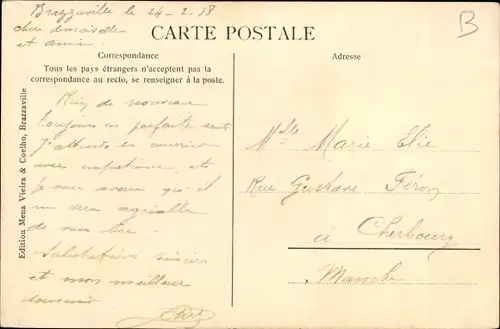 Brazzaville le 24-2.18
chère demoiselle
et amie
CARTE POSTALE
B
Correspondance
Tous les pays étrangers n'acceptent pas la
correspondance au recto, se renseigner à la poste.
Rien de nouveau
toujours en parfaite santé
J'attends un courrier
avec impatience et
je vous avoue qu'il
me sera agréable
de vous lire
Salutations sincères
et mon meilleur
souvenir
Edition Mena Vieira & Coelho, Brazzaville
Adresse
Mlle Marie Elie
Rue Gustave Féron
à Cherbourg
Manche